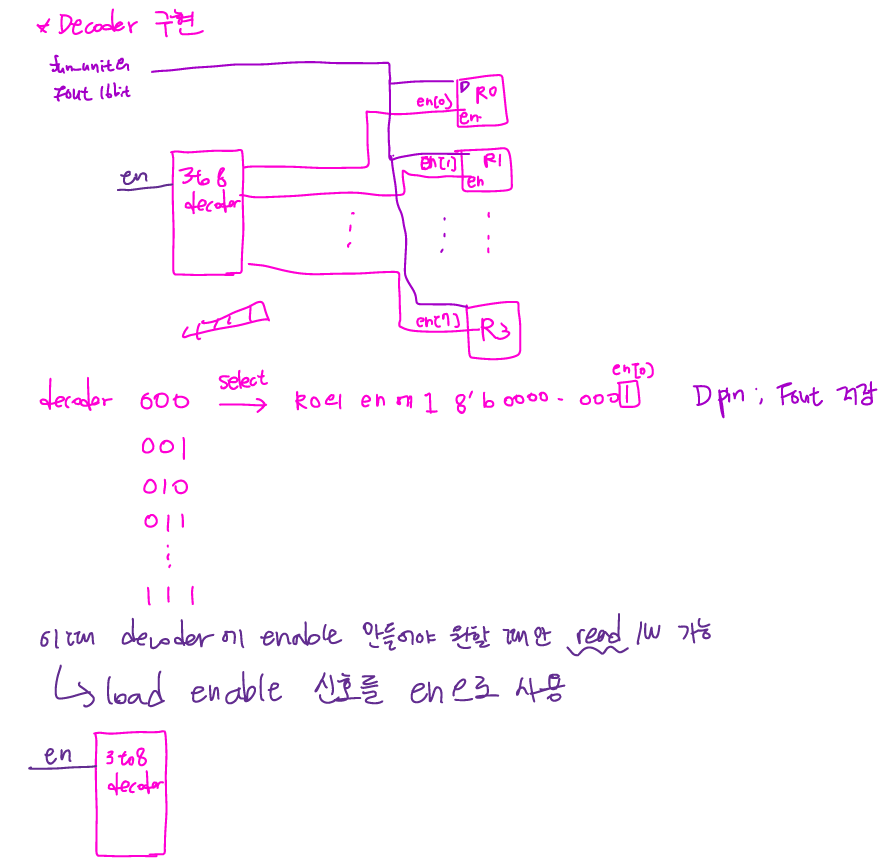 * Decoder 구현
fun_unit
Fout 16bit
D R0
en[0]
en
en[1] R1
en
en 3 to 8
decoder
en[7] R3
en[0]
decoder 000 select R0의 en에 1 8'b0000-0001 D pin ; Fout 저장
001
010
011
111
이때 decoder에 enable 만들어야 원할 때만 read /W 가능
load enable 신호를 en으로 사용
en 3 to 8
decoder